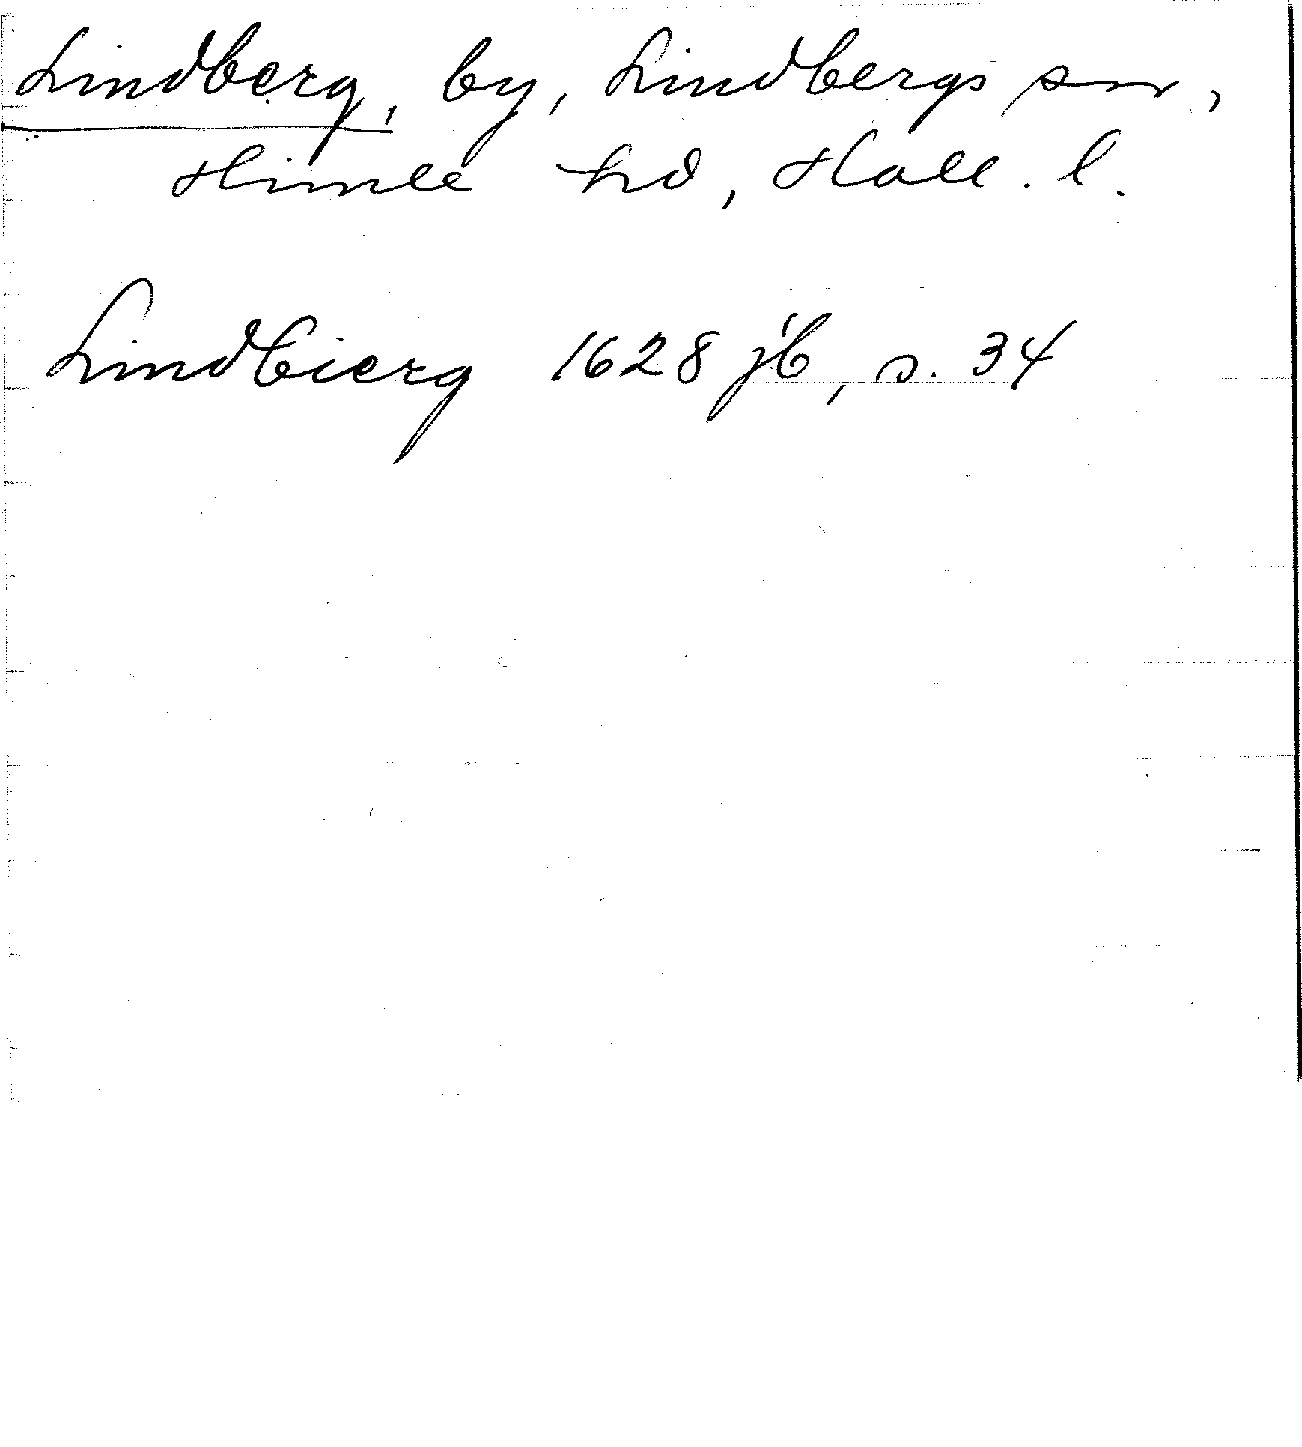 Lindberg, by, Lindbergs sn,
Himle hd, Hall. l.
Lindbierg 1628 jb, s. 34